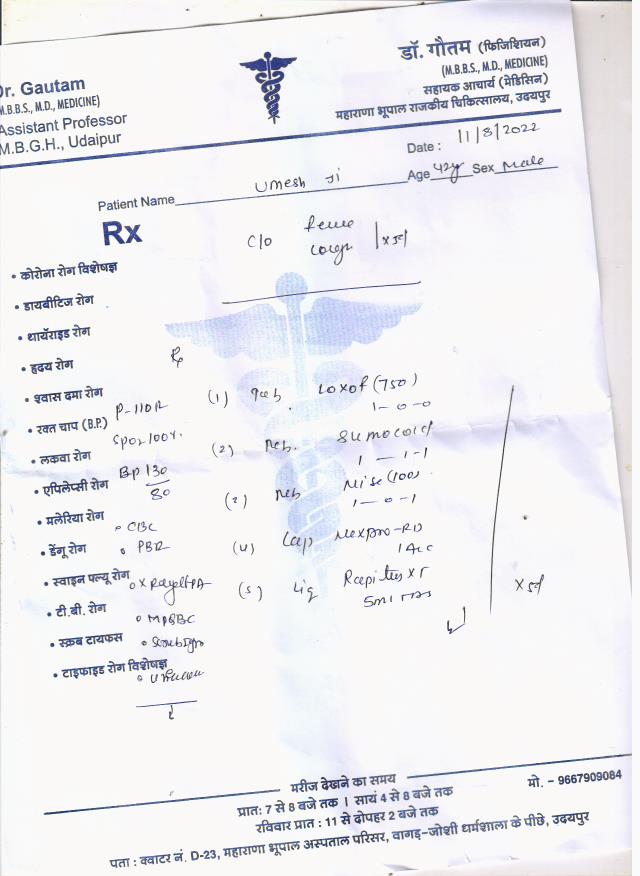 Dr. Gautam
(M.B.B.S., M.D., MEDICINE)
Assistant Professor
M.B.G.H., Udaipur
डॉ. गौतम (फिजिशियन)
(M.B.B.S., M.D., MEDICINE)
सहायक आचार्य (मेडिसिन)
महाराणा भूपाल राजकीय चिकित्सालय, उदयपुर
Date : 11/8/2022
Patient Name Umesh Ji Age 42y Sex Male
Rx
C/o
• कोरोना रोग विशेषज्ञ
• डायबीटिज रोग
• थायॅराइड रोग
• हृदय रोग
• श्वास दमा रोग
(1) Tab. Loxof (750)
1-0-0
• रक्त चाप (B.P.)
P-110R
SPO2 100%
(2) Tab. Sumocold
1-1-1
• लकवा रोग
• एपिलेप्सी रोग
BP 130/80
Tab Nise (100)
1-0-1
• मलेरिया रोग
• CBC
(4) Cap Nexpro-RD
• डेंगू रोग
• PBR
• स्वाइन फ्ल्यू रोग
• X Ray
(5) Liq
5ml TDS
X 5d
• टी.बी. रोग
• स्क्रब टायफस
• टाइफाइड रोग विशेषज्ञ
मरीज देखने का समय
प्रात: 7 से 8 बजे तक । सायं 4 से 8 बजे तक
रविवार प्रात : 11 से दोपहर 2 बजे तक
मो. - 9667909084
पता : क्वाटर नं. D-23, महाराणा भूपाल अस्पताल परिसर, वागड़-जोशी धर्मशाला के पीछे, उदयपुर